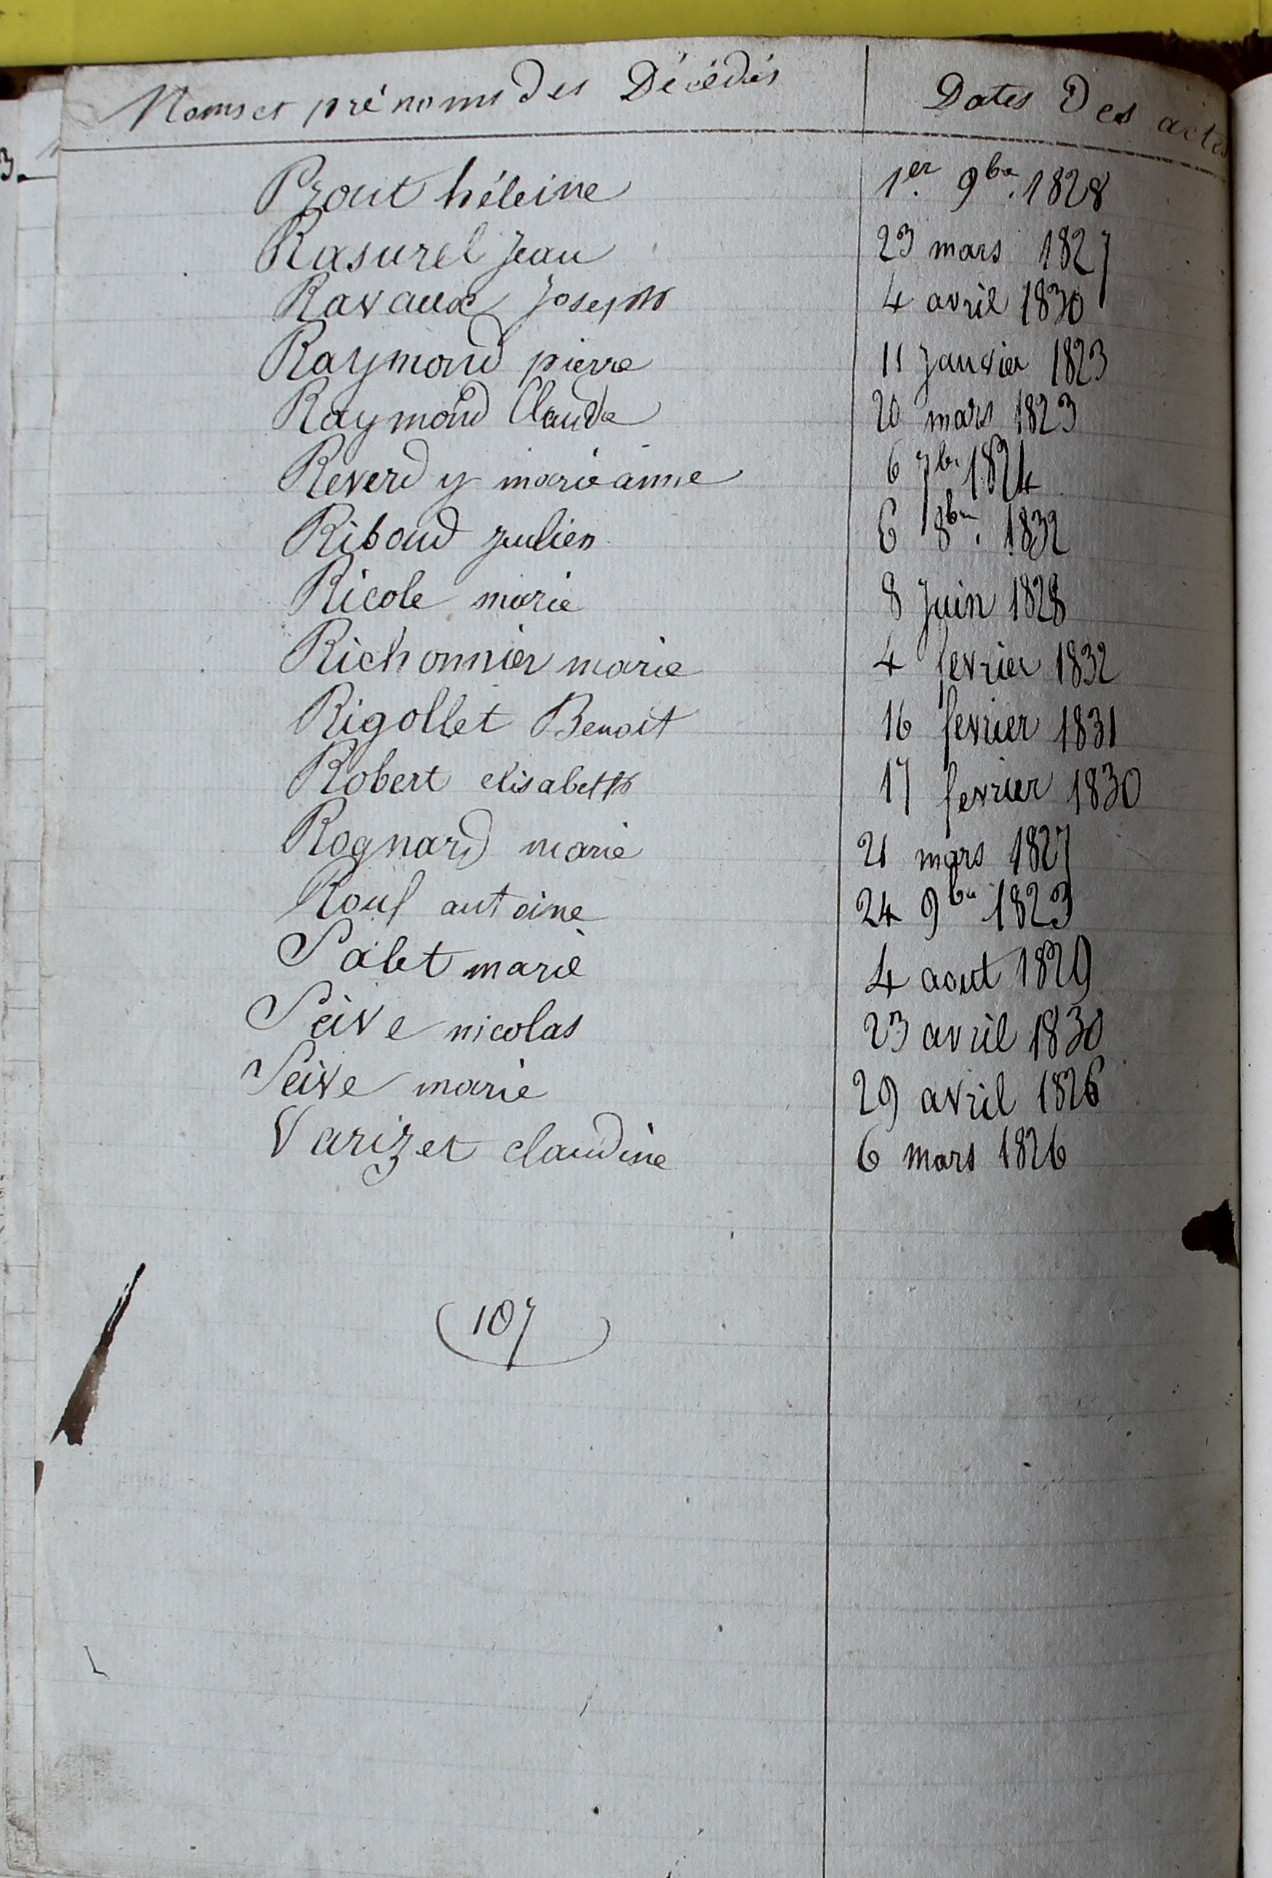 Noms et prénoms des Décédés Dates Des actes
3.
Prout héleine 1er. 9bre. 1828
Rasurel Jean 23 mars 1827
Ravaux Joseph 4 avril 1830
Raymond pierre 11 Janvier 1823
Raymond Claude 20 mars 1823
Reverdy marieanne 6 7bre 1824
Riboud Julien 6 8bre. 1832
Ricole marie 8 Juin 1828
Richonnier marie 4 fevrier 1832
Rigollet Benoit 16 fevrier 1831
Robert elisabeth 17 fevrier 1830
Rognard marie 21 mars 1827
Rouf antoine 24 9bre 1823
Salet marie 4 aout 1829
Seive nicolas 23 avril 1830
Seive marie 29 avril 1826
Varizet claudine 6 mars 1826
107